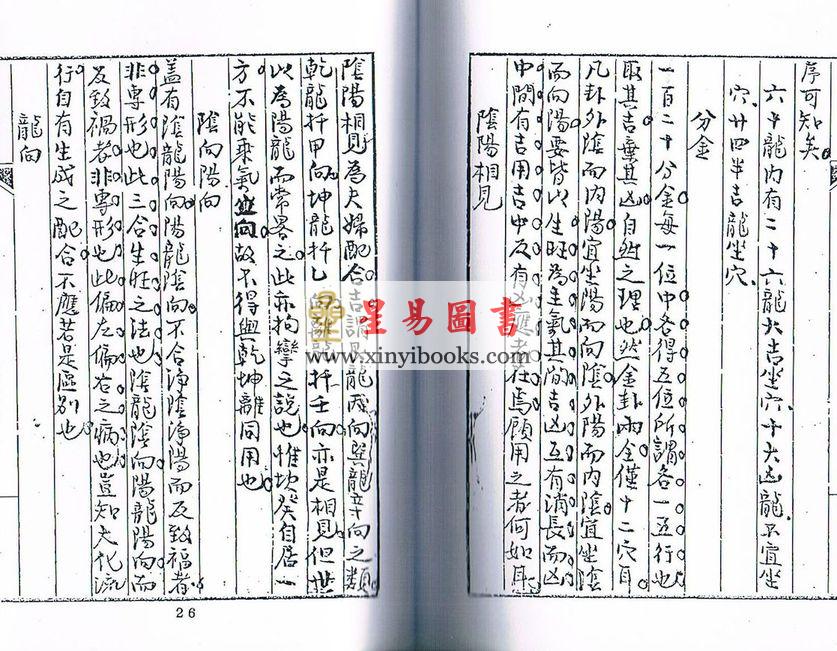 序可知矣
六十龍內有二十六龍大吉坐穴十大凶龍不宜坐
穴廿四半吉龍坐穴
分金
一百二十分金每一位中各得五位所謂各一五行也
取其吉棄其凶自然之理也然金卦兩全僅十二穴耳
凡卦外陰而內陽宜坐陽而向陰外陽而內陰宜坐陰
而向陽要皆以生旺為主氣其間吉凶互有消長而凶
中間有吉用吉中反有凶應者在焉顧用之者何如耳
陰陽相見
陰陽相見為夫婦配合吉龍向巽龍辛向之類
乾龍扦甲向坤龍扦乙向離龍扦壬向亦是相見但世
以為陽龍而常畧之此亦拘攣之說也惟坎癸自居一
方不能乘氣並向故不得與乾坤離同用也
陰向陽向
蓋有陰龍陽向陽龍陰向不合淨陰淨陽而反致福者
非專形也此三合生旺之法也陰龍陰向陽龍陽向而
反致禍者非專形也此偏左偏右之病也豈知大化流
行自有生成之配合不應若是區別也
龍向
26
星易圖書
www.xinyibooks.com